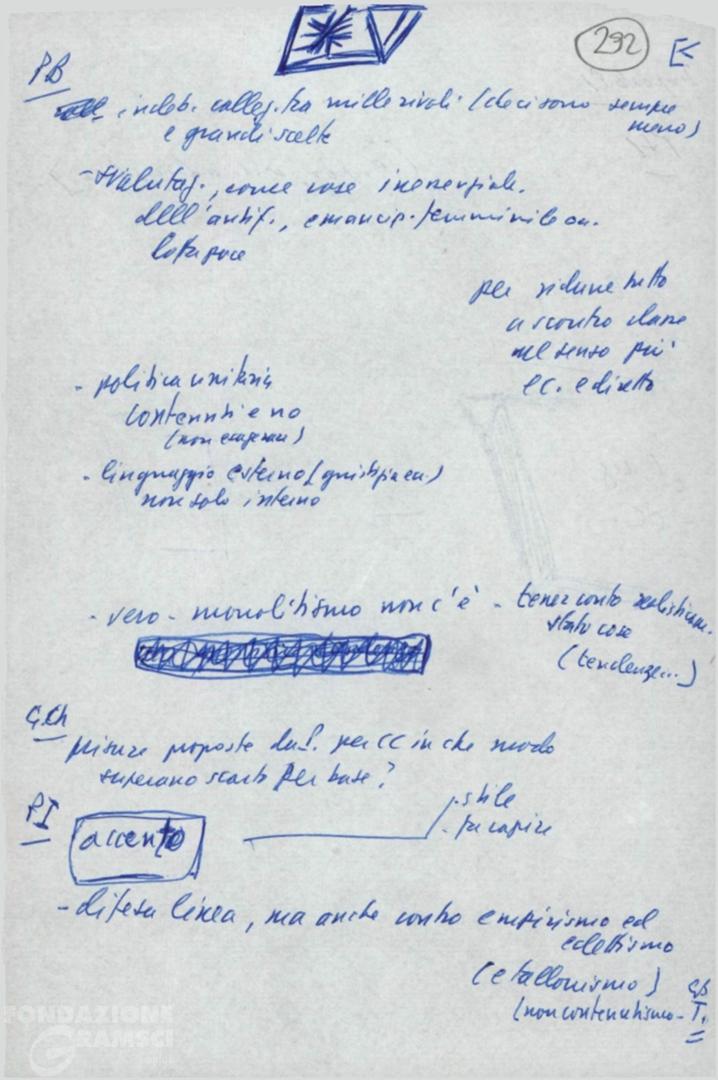 292
E<
P.B
indeb. colleg. tra mille rivoli (decisono sempre meno)
e grandi scelte
- svalutaz., come cose inessenziale.
dell'antif., emancip. femminile ou.
lotta pace
per ridurre tutto
a scontro classe
nel senso più
ec. e diretto
- politica unitaria
contenuti e no
(non esagerare)
- linguaggio esterno (giustifica
non solo interno
- vero - monolitismo non c'è - tener conto realisticam.
stato cose
(tendenze...)
G.Ch
misure proposte da S. per CC in che modo
superano scarti per base?
P I
accento
- stile
- fa capire
- difesa linea, ma anche contro empirismo ed
eclettismo
(e tallonismo)
(non contenutismo -
FONDAZIONE
GRAMSCI